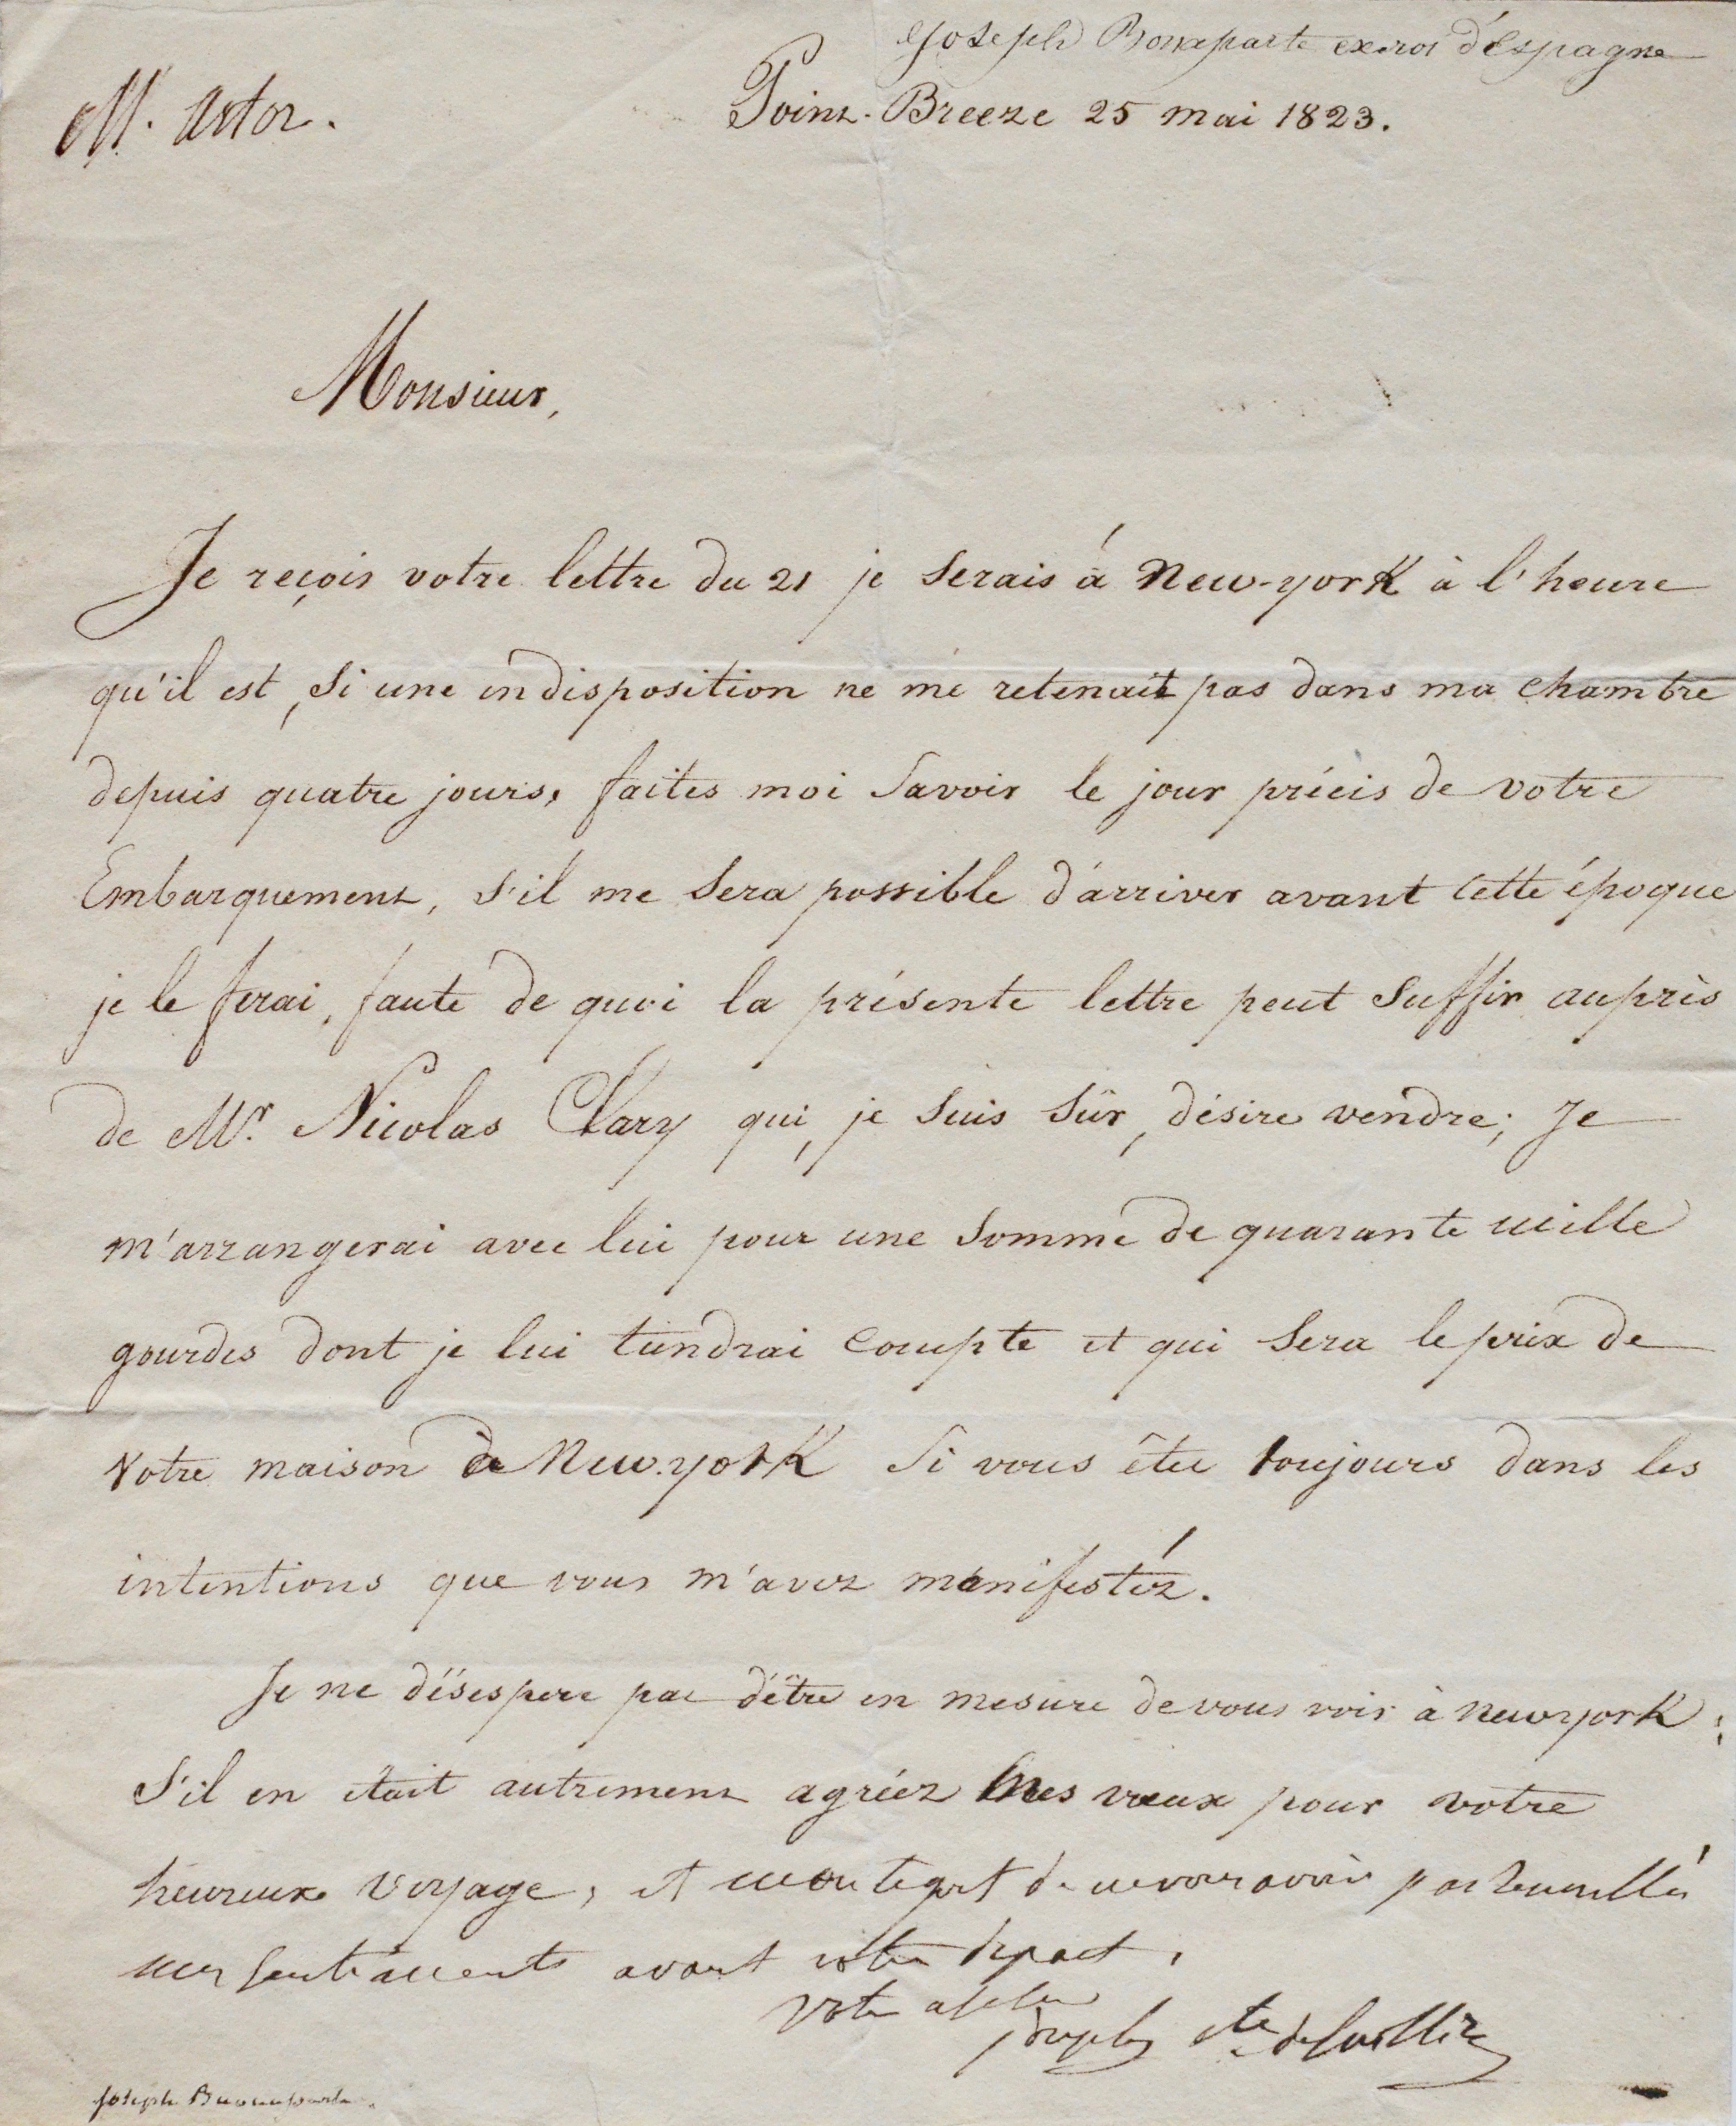 Joseph Bonaparte ex roi d'Espagne
M. Astor.
Point-Breeze 25 mai 1823.
Monsieur,
Je reçois votre lettre du 21 je serais à New-york à l'heure
qu'il est, si une indisposition ne me retenait pas dans ma chambre
depuis quatre jours, faites moi savoir le jour précis de votre
Embarquement, s'il me sera possible d'arriver avant cette époque
je le ferai, faute de quoi la présente lettre peut suffir auprès
de Mr. Nicolas Clary qui, je suis sûr, désire vendre; Je
m'arrangerai avec lui pour une somme de quarante mille
gourdes dont je lui tiendrai compte et qui sera le prix de
votre maison de New-york si vous êtes toujours dans les
intentions que vous m'avez manifestéz.
Je ne désespere pas d'être en mesure de vous voir à new york;
s'il en était autrement agréez mes vœux pour votre
heureux voyage, et mon regret de
mes sentiments avant votre départ,
votre
Joseph cte de Survilliers
Joseph Buonaparte.